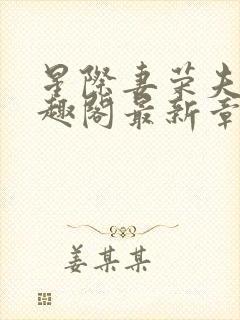 星际妻荣夫
趣阁最新章
姜某某